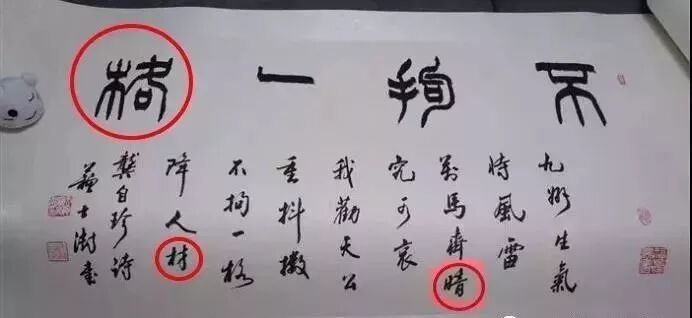 不拘一格
九州生氣
恃風雷
萬馬齊暗
究可哀
我勸天公
重抖擻
不拘一格
降人材
龔自珍詩
蘇士澍書